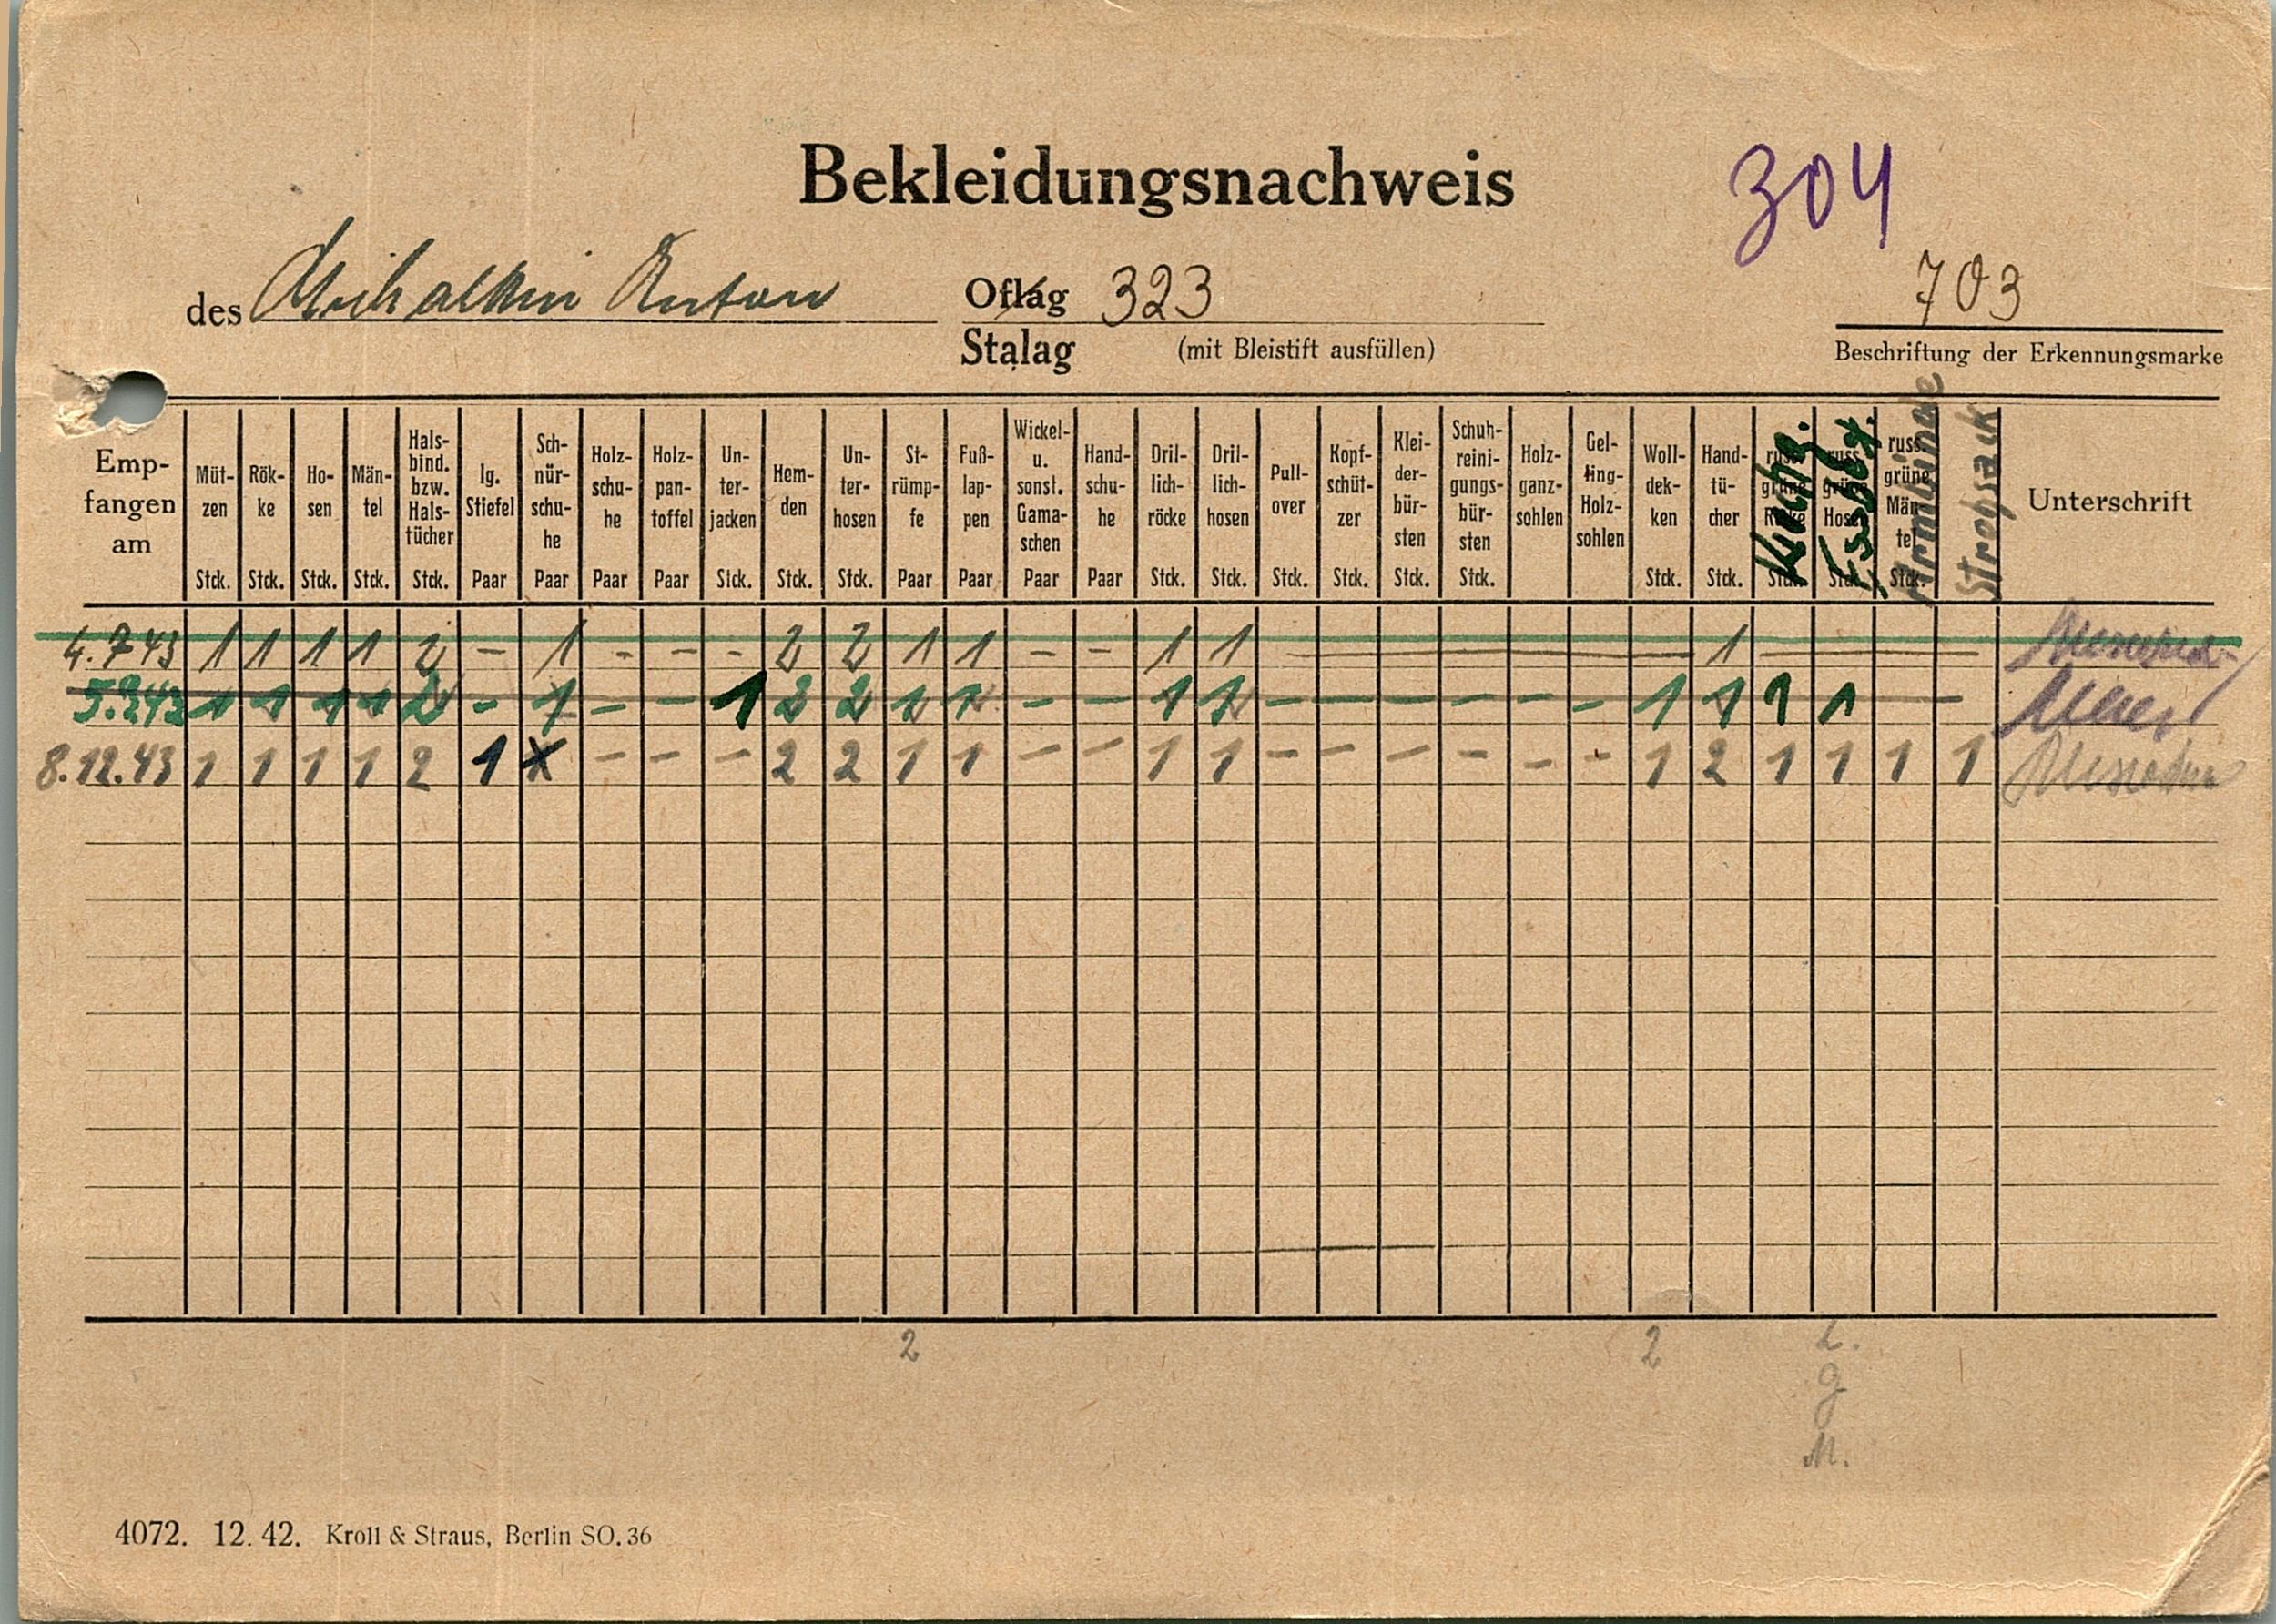 Bekleidungsnachweis
304
des Michalkin Anton
Oflag 323
703
Stalag (mit Bleistift ausfüllen)
Beschriftung der Erkennungsmarke
Emp-fangen am
Müt-zen Stck.
Rök-ke Stck.
Ho-sen Stck.
Män-tel Stck.
Hals-bind. bzw. Hals-tücher Stck.
lg. Stiefel Paar
Sch-nür-schu-he Paar
Holz-schu-he Paar
Holz-pan-toffel Paar
Un-ter-jacken Stck.
Hem-den Stck.
Un-ter-hosen Stck.
St-rümp-fe Paar
Fuß-lap-pen Paar
Wickel- u. sonst. Gama-schen Paar
Hand-schu-he Paar
Dril-lich-röcke Stck.
Dril-lich-hosen Stck.
Pull-over Stck.
Kopf-schüt-zer Stck.
Klei-der-bür-sten Stck.
Schuh-reini-gungs-bür-sten Stck.
Holz-ganz-sohlen
Gel-ling-Holz-sohlen
Woll-dek-ken Stck.
Hand-tü-cher Stck.
russ. grüne Röcke Stck.
russ. grüne Hosen Stck.
Essbst.
russ. grüne Män-tel Stck.
Armbinde
Strohsack
Unterschrift
4.7.43 1 1 1 1 2 - 1 - - - 2 2 1 1 - - 1 1 - 1 -
5.9.43 1 1 1 1 2 - 1 - - 1 2 2 1 1 - - 1 1 - - - - - - 1 1 1 1 -
8.12.43 1 1 1 1 2 1 x - - - 2 2 1 1 - - 1 1 - - - - - - 1 2 1 1 1 1
2 2 L.
g
M.
4072. 12. 42. Kroll & Straus, Berlin SO. 36